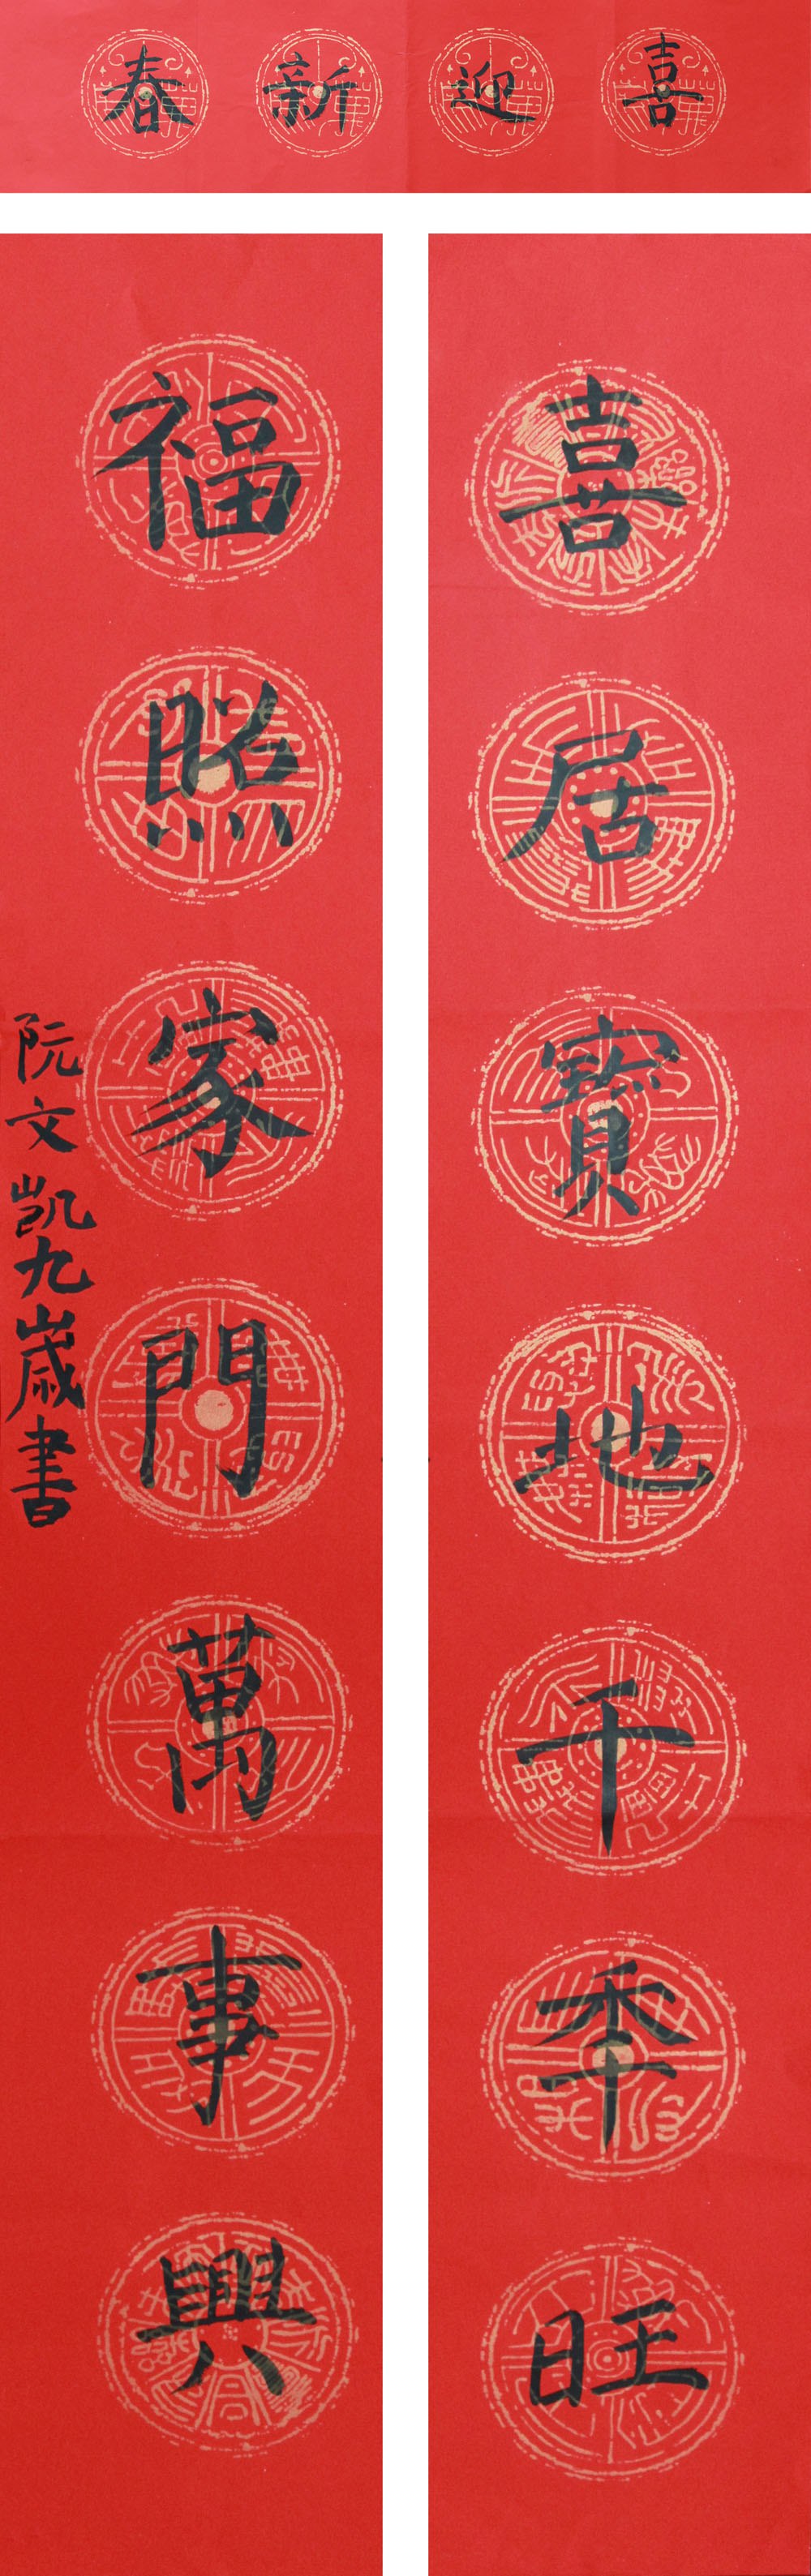 喜迎新春
喜居寶地千秊旺
福照家門萬事興
阮文凯九嵗書